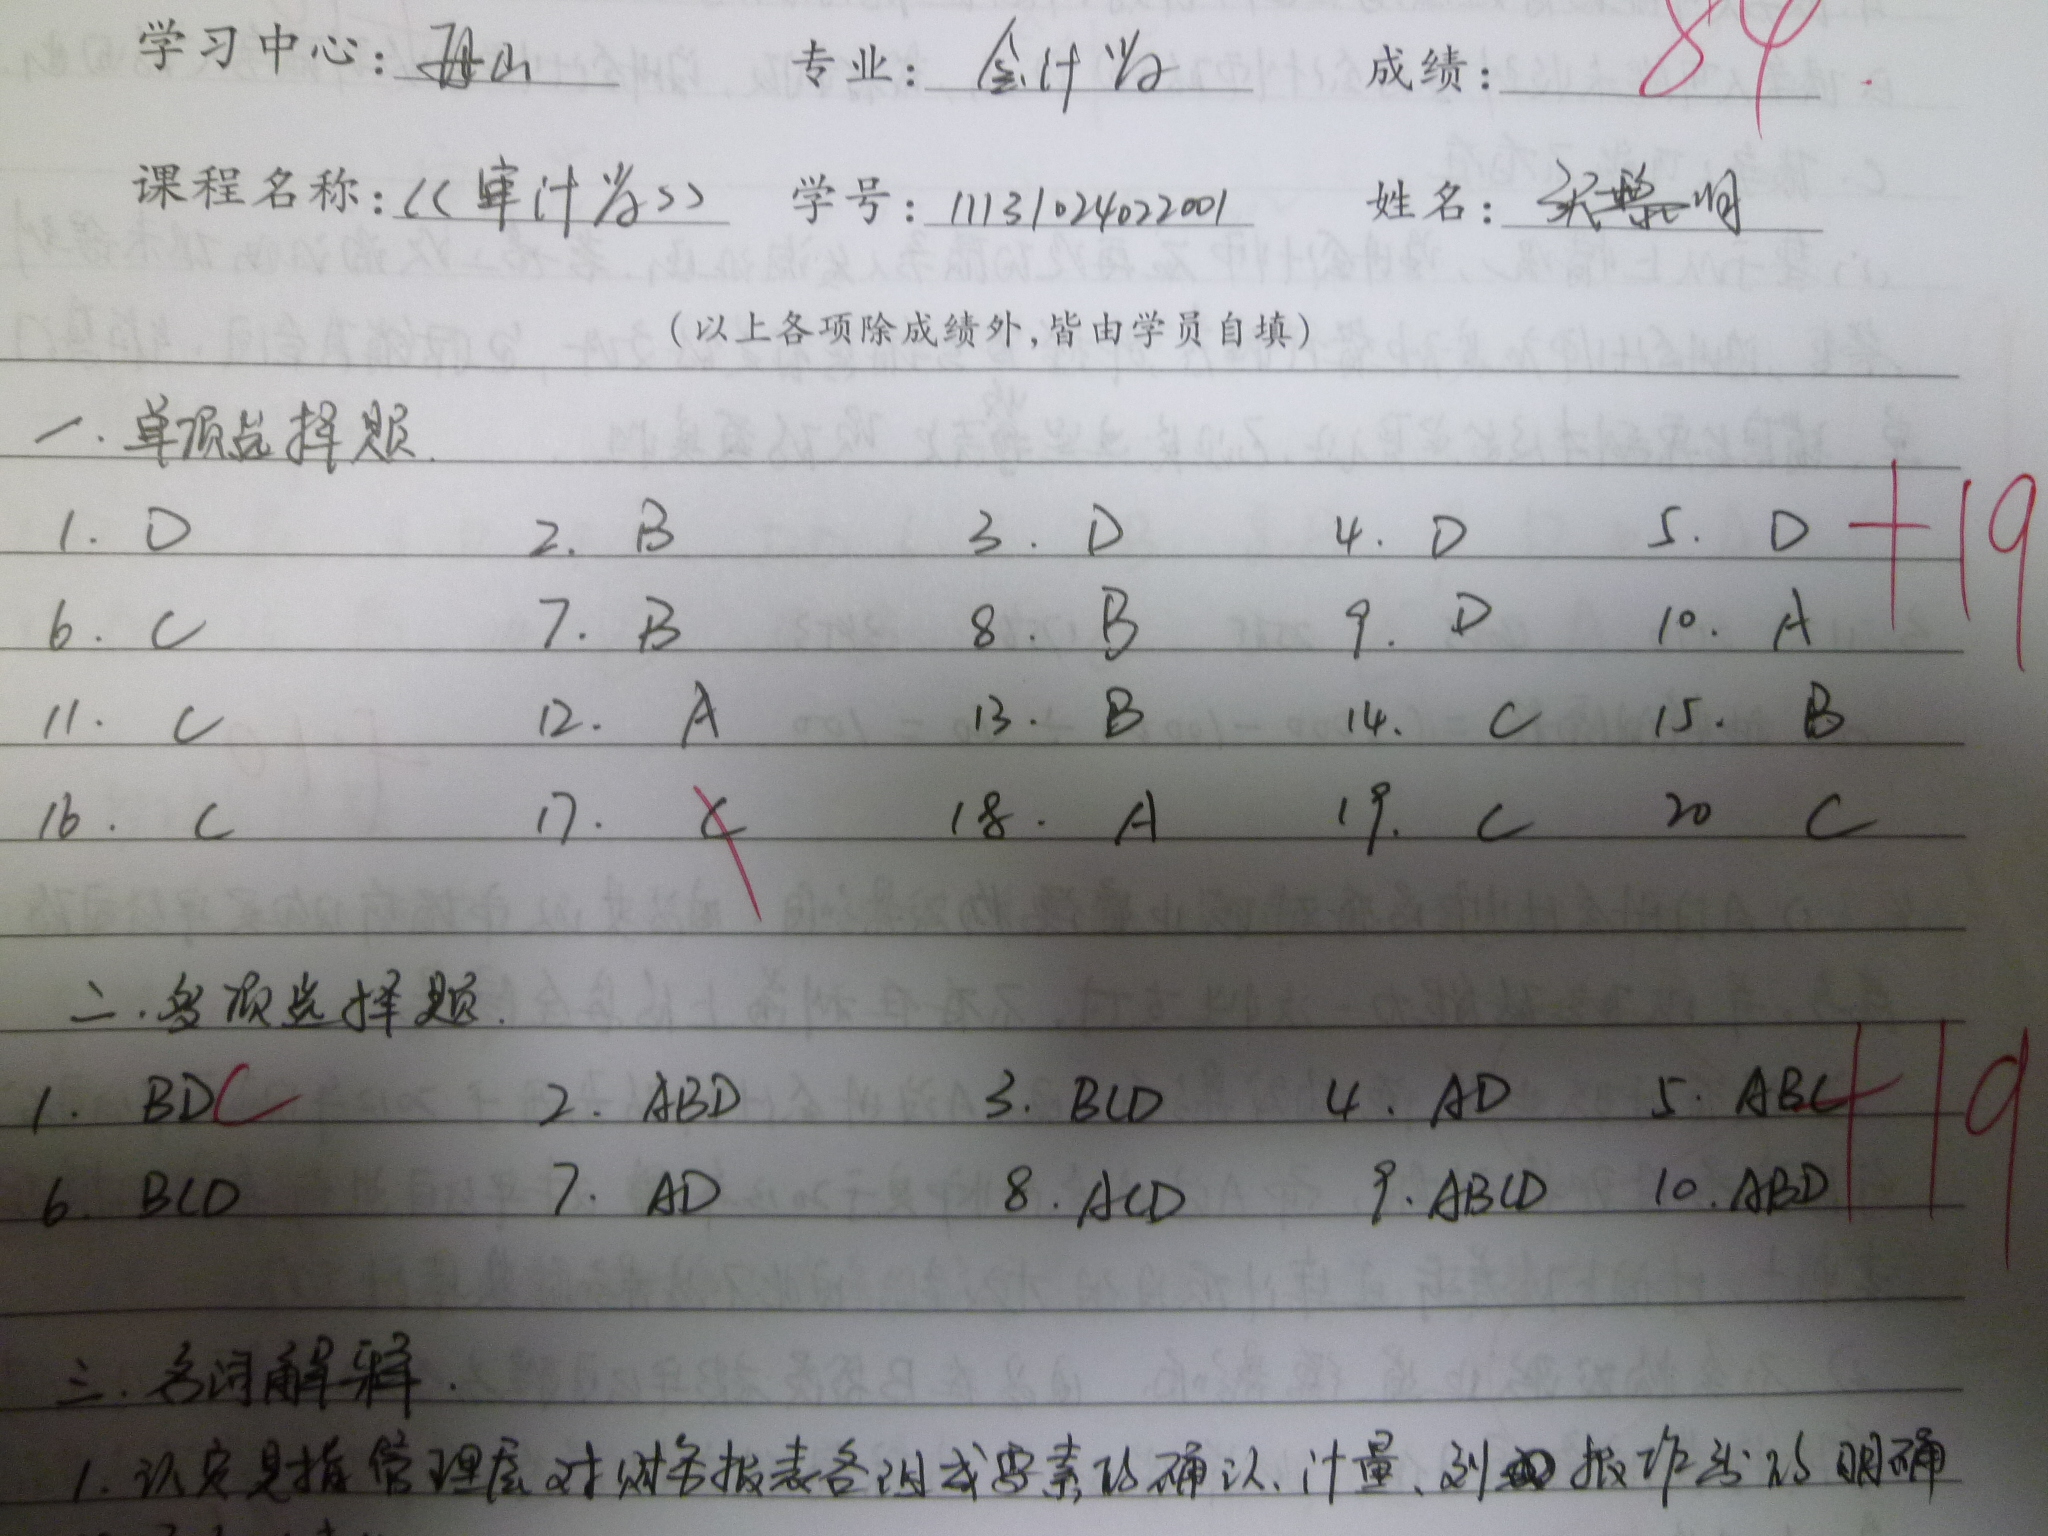 学习中心: 舟山 专业: 会计学 成绩: 84
课程名称: 《审计学》 学号: 11131024022001 姓名:
(以上各项除成绩外,皆由学员自填)
一.单项选择题.
1. D 2. B 3. D 4. D 5. D +19
6. C 7. B 8. B 9. D 10. A
11. C 12. A 13. B 14. C 15. B
16. C 17. C 18. A 19. C 20 C
二.多项选择题.
1. BDC 2. ABD 3. BCD 4. AD 5. ABC +19
6. BCD 7. AD 8. ACD 9. ABCD 10. ABD
三.名词解释.
1. 认定是指管理层对财务报表各组成要素的确认、计量、列报作出的明确